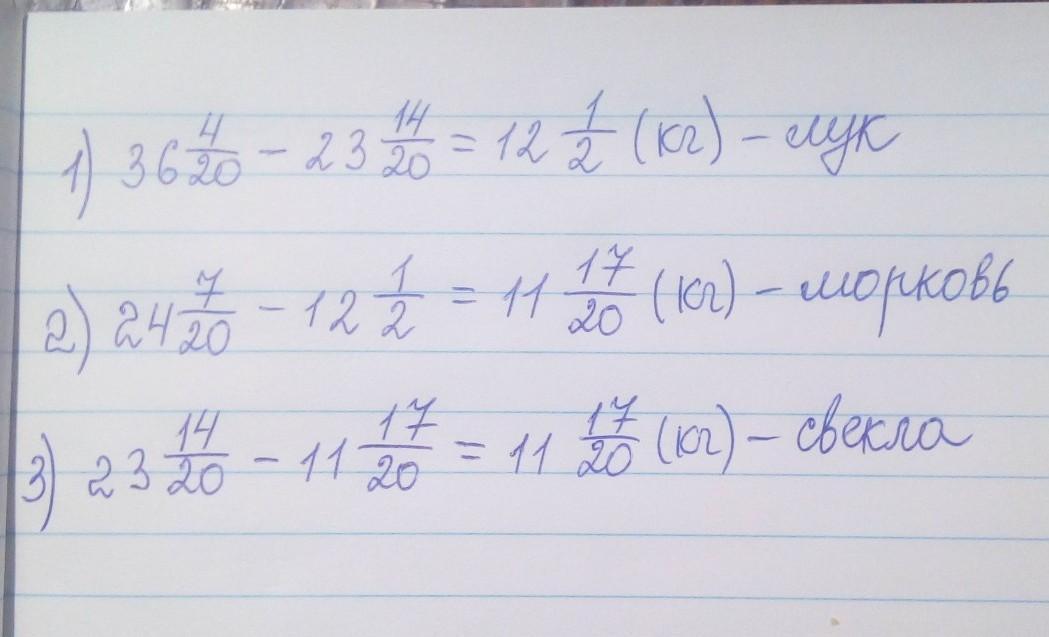 1) 36 4/20 - 23 14/20 = 12 1/2 (кг) - лук
2) 24 7/20 - 12 1/2 = 11 17/20 (кг) - морковь
3) 23 14/20 - 11 17/20 = 11 17/20 (кг) - свекла